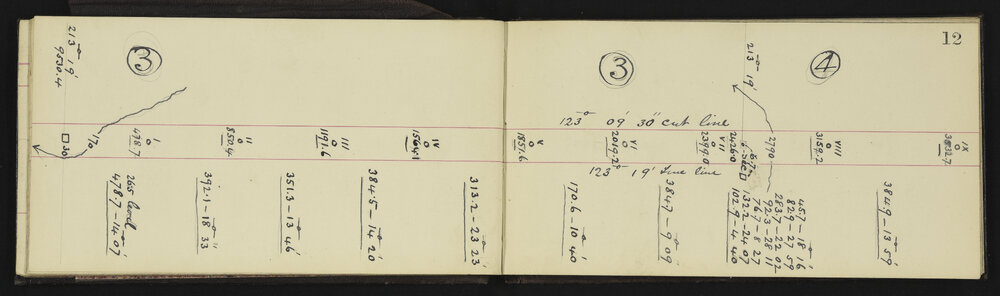 12
213° 19'
9530.4
3
3
213° 19'
4
123° 09' 30" cut line
170
□ 30
I
o
478.7
II
o
850.4
III
o
1191.6
IV
o
1564.1
V
o
1851.6
VI
o
2019.2
VII
o
2399.0
2426.0
2790
VIII
o
3159.2
IX
o
3532.7
123° 19' True line
265 level
478.7 – 14° 07'
392.1 – 18° 33'
351.3 – 13° 46'
384.5 – 14° 20'
313.2 – 23° 23'
170.6 – 10° 40'
384.7 – 9° 09'
45.7 – 18° 16'
82.9 – 27 59
283.7 – 22 02
92.3 – 28 11
76.7 – 8 27
132.2 – 24 07
102.9 – 4 40
384.9 – 13° 59'